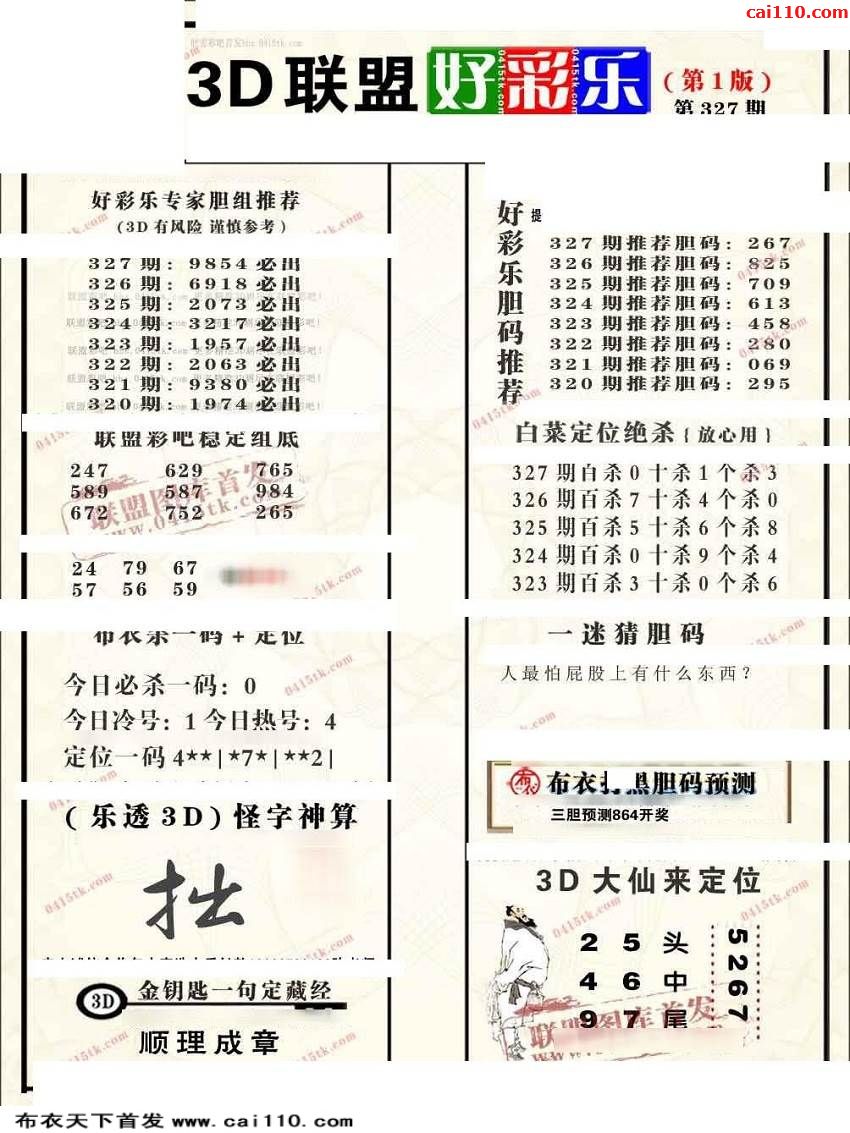 cai110.com
3D联盟好彩乐(第1版)
第327期
好彩乐专家胆组推荐
(3D有风险 谨慎参考)
327期:9854必出
326期:6918必出
325期:2073必出
324期:3217必出
323期:1957必出
322期:2063必出
321期:9380必出
320期:1974必出
联盟彩吧稳定组底
247 629 765
589 587 984
672 752 265
24 79 67
57 56 59
布衣杀一码+定位
今日必杀一码:0
今日冷号:1今日热号:4
定位一码4**|*7*|**2|
(乐透3D)怪字神算
拙
3D 金钥匙一句定藏经
顺理成章
好彩乐胆码推荐
提
327期推荐胆码:267
326期推荐胆码:825
325期推荐胆码:709
324期推荐胆码:613
323期推荐胆码:458
322期推荐胆码:280
321期推荐胆码:069
320期推荐胆码:295
白菜定位绝杀{放心用}
327期百杀0十杀1个杀3
326期百杀7十杀4个杀0
325期百杀5十杀6个杀8
324期百杀0十杀9个杀4
323期百杀3十杀0个杀6
一迷猜胆码
人最怕屁股上有什么东西?
布衣 胆码预测
三胆预测864开奖
3D大仙来定位
2 5 头
4 6 中
9 7 尾
5267
联盟图库首发
www.0415tk.com
0415tk.com
布衣天下首发 www.cai110.com